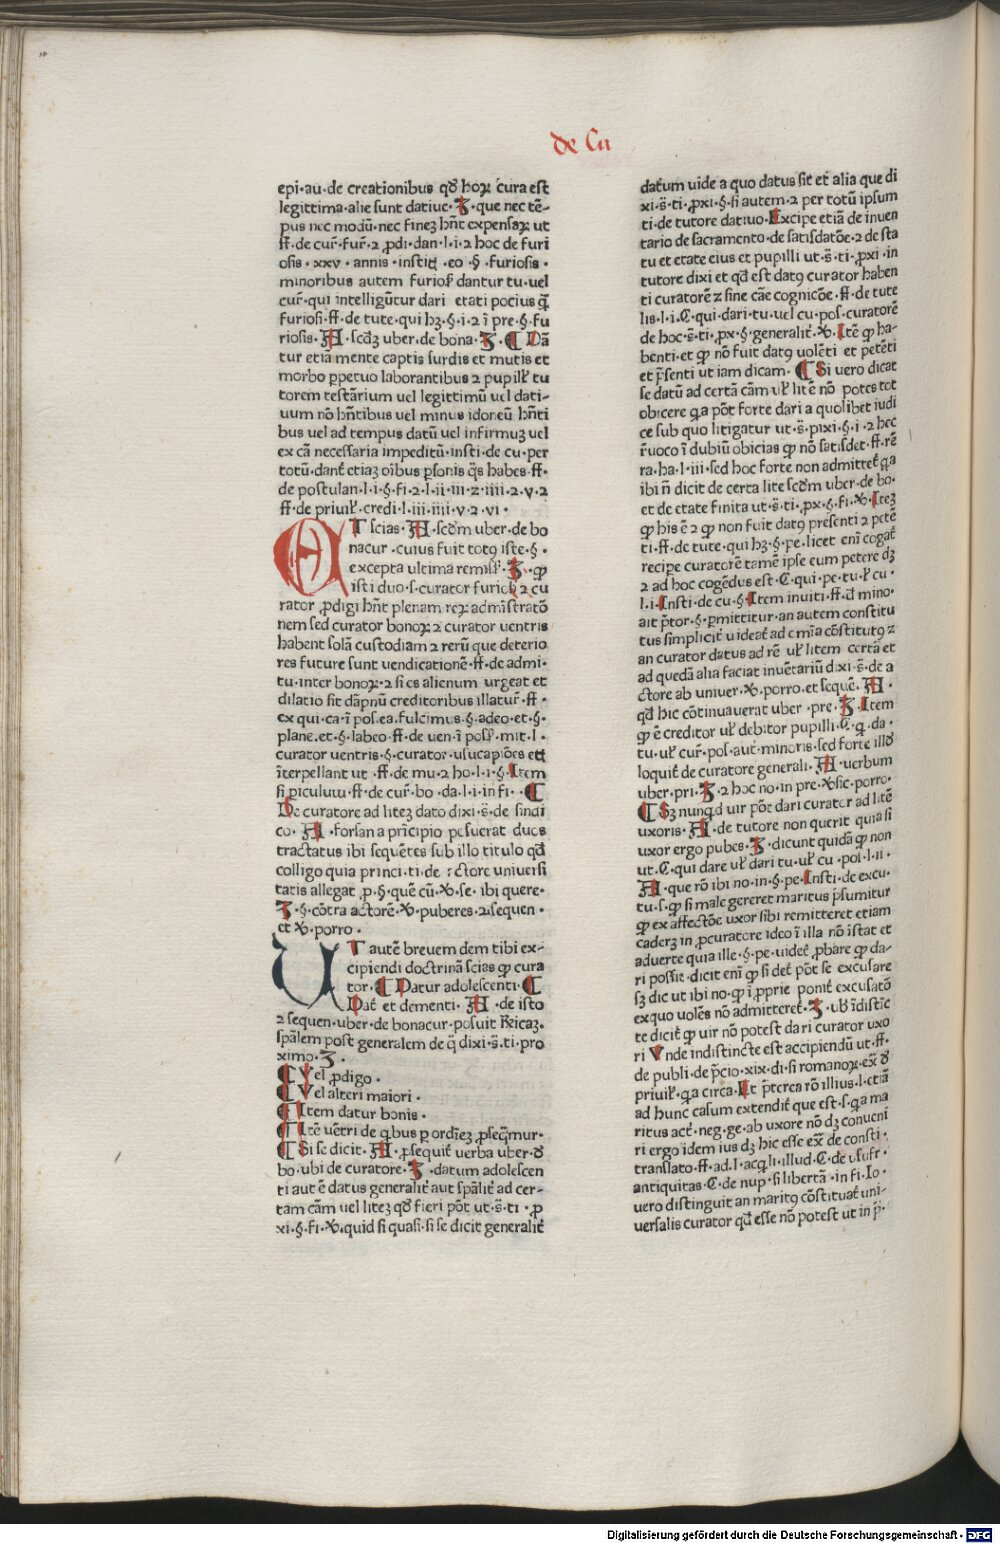 de Cu
epi·au·de creationibus qd̕ hoꝝ cura est
legittima·alie sunt datiue·Ʒ·que nec tē-
pus nec modū·nec fineꝫ hn̄t expensaꝝ ut
ff·de cur̕·fur̕·2 ꝓdi·dan·l·i·2 hoc de furi
osis·xxv·annis·instiꝗ·eo·§·furiosis·
minoribus autem furiosꝭ dantur tu·uel
cur̕·qui intelligūtur dari etati pocius q̄
furiosi·ff·de tute·qui hꝫ·§·i·2 ī pre·§·fu
riosis·A·scd̕ꝫ uber·de bona·Ʒ·¶ Dā
tur etiā mente captis surdis et mutis et
morbo ꝑpetuo laborantibus 2 pupill̕ tu
torem testārium uel legittimū uel dati-
uum nō hn̄tibus uel minus idoneū hn̄ti
bus uel ad tempus datū uel infirmuꝫ uel
ex cā necessaria impeditū·insti·de cu·per
totū·dant̕ etiaꝫ oībus ꝑsonis q̄s habes·ff·
de postulan·l·i·§·fi·2·l·ii·iii·z·iiii·2·v·2
ff·de priuil̕·credi·l·iii·iiii·v·2·vi·
AT scias·A·scd̕m uber·de bo
nacur·cuius fuit totꝯ iste·§·
excepta ultima remiss̕·Ʒ·ꝙ
isti duo·s·curator furiosi 2 cu
rator ꝓdigi hn̄t plenam reꝝ admīstratō
nem sed curator bonoꝝ 2 curator uentris
habent solā custodiam 2 rerū que deterio
res future sunt uendicationē·ff·de admi·
tu·inter bonoꝝ·2 si es alienum urgeat et
dilatio sit dāpnū creditoribus illatur̕·ff·
ex qui·ca·ī pos·ea·fulcimus·§·adeo·et·§·
plane·et·§·labeo·ff·de uen·ī poss̕·mit·l·
curator uentris·§·curator·usucapiōes etꝗ
īterpellant ut·ff·de mu·2 ho·l·i·§·Item
si piculuu·ff·de cur̕·bo·da·l·i·in fi··¶
De curatore ad liteꝫ dato dixi·s̄·de sindi
co·A·forsan a prīcipio posuerat duos
tractatus ibi sequētes sub illo titulo qd̕
colligo quia princi·ti·de actore uniuersi
tatis allegat ꝑ·§·quē cū·℣·se·ibi quere·
Ʒ·§·cōtra actorē·℣·puberes·2·sequen·
et ℣·porro·
UT autē breuem dem tibi ex-
cipiendi doctrinā scias ꝙ cura
tor·¶ Datur adolescenti·¶
Dat̕ et dementi·A·de isto
2 sequen·uber·de bonacur·posuit Ricaꝫ·
spālem post generalem de q̄ dixi·s̄·ti·pro
ximo·Ʒ·
¶ Vel ꝓdigo·
¶ Vel alteri maiori·
¶ Item datur bonis·
¶ Itē uētri de qbus ꝑ ordieꝫ ꝓseqmur·
¶ Si se dicit·A·ꝓsequit̕ uerba uber·d̕
bo·ubi de curatore·Ʒ·datum adolescen
ti aut ē datus generalit̕ aut spālit̕ ad cer-
tam cām uel liteꝫ qd̕ fieri pōt ut·s̄·ti·ꝓ
xi·§·fi·℣·quid si quasi·si se dicit generalit̕
datum uide a quo datus sit et alia que di
xi·s̄·ti·ꝓxi·§·si autem·2 per totū ipsum
ti·de tutore datiuo·Excipe etiā de inuen
tario de sacramento·de satisdatōe·2 de sta
tu et etate eius et pupilli ut·s̄·ti·ꝓxi·in
tutore dixi et qd̕ est datꝯ curator haben
ti curatorē z sine cāe cognicōe·ff·de tute
lis·l·i·C·qui·dari·tu·uel cu·pos·curatorē
de hoc·s̄·ti·ꝓx·§·generalit̕·℣·Itē ꝙ ha-
benti·et ꝙ nō fuit datꝯ uolēti et petēti
et p̄senti ut iam dicam·¶ Si uero dicat
se datū ad certā cām ul̕ litē nō potes tot
obicere qa pōt forte dari a quolibet iudi
ce sub quo litigatur ut·s̄·ꝓxi·§·i·2 hec
r̄uoco ī dubiū obicias ꝙ nō satisdet·ff·rē
ra·ha·l·iii·sed hoc forte non admittet̕ qa
ibi n̄ dicit de certa lite scd̕m uber·de bo·
et de etate finita ut·s̄·ti·ꝓx·§·fi·℣·Iteꝫ
ꝙ his ē 2 ꝙ non fuit datꝯ presenti 2 petē
ti·ff·de tute·qui hꝫ·§·pe·licet enī cogat̕
recipe curatorē tamē ipse eum petere dꝫ
2 ad hoc cogēdus est·C·qui·pe·tu·ul̕ cu·
l·i·Insti·de cu·§·Item inuiti·ff·d̕ mino·
ait p̄tor·§·ꝑmittitur·an autem constitu
tus simplicit̕ uideat̕ ad omīa cōstitutꝯ z
an curator datus ad rē ul̕ litem certā et
ad quedā alia faciat inuētariū dixi·s̄·de a
ctore ab uniuer·℣·porro·et sequē·A·
qd̕ hic cōtinuauerat uber·pre·Ʒ·Item
ꝙ ē creditor ul̕ debitor pupilli·C·q·da·
tu·ul̕ cur̕·pos·aut·minoris·sed forte illd̕
loquit̕ de curatore generali·A·uerbum
uber·pri·Ʒ·2 hoc no·in pre·℣·sic·porro·
¶ Sꝫ nunqd̕ uir pōt dari curator ad litē
uxoris·A·de tutore non querit quia si
uxor ergo pubes·Ʒ·dicunt quidā ꝙ non
ut·C·qui dare ul̕ dari tu·ul̕ cu·pos·l·ii·
A·que rō ibi no·in·§·pe·Insti·de excu·
tu·s·ꝙ si male gereret maritus p̄sumitur
ꝙ ex affectōe uxor sibi remitteret etiam
cadeꝫ in ꝓcuratore ideo ī illa nō istat et
aduerte quia ille·§·pe·uidet̕ ꝓbare ꝙ da-
ri possit·dicit enī ꝙ si det̕ pōt se excusare
sꝫ dic ut ibi no·ꝙ ī ꝓprie ponit̕ excusatō
exquo uolēs nō admitteret̕·Ʒ·ub̕ īdistic
te dicit̕ ꝙ uir nō potest dari curator uxo
ri Vnde indistincte est accipiendū ut·ff·
de publi·de p̄cio·xix·di·si romanoꝝ·ex̄ d̕
priuil̕·qa circa·Et p̄terea rō illius·l·etiā
ad hunc casum extendit̕ que est·s·qa ma
ritus act̕·neg·ge·ab uxore nō dꝫ conueni
ri ergo idem ius dꝫ hic esse ex̄ de consti·
translato·ff·ad·l·acqli·illud·C·de usufr̕·
antiquitas·C·de nup·si libertā·in fi·Io·
uero distinguit an maritꝯ cōstituat̕ uni-
uersalis curator qd̕ esse nō potest ut in p̄·
Digitalisierung gefördert durch die Deutsche Forschungsgemeinschaft · DFG